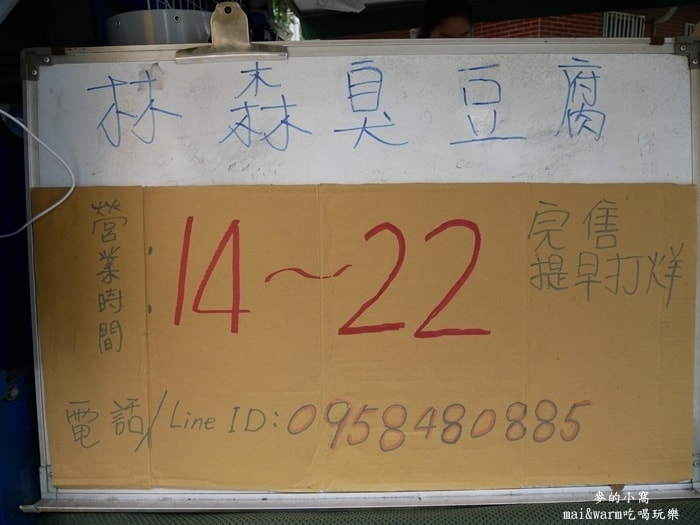 林森臭豆腐
營業時間：14～22
完售
提早打烊
電話/Line ID: 0958480885
麥的小窩
mai&warm吃喝玩樂